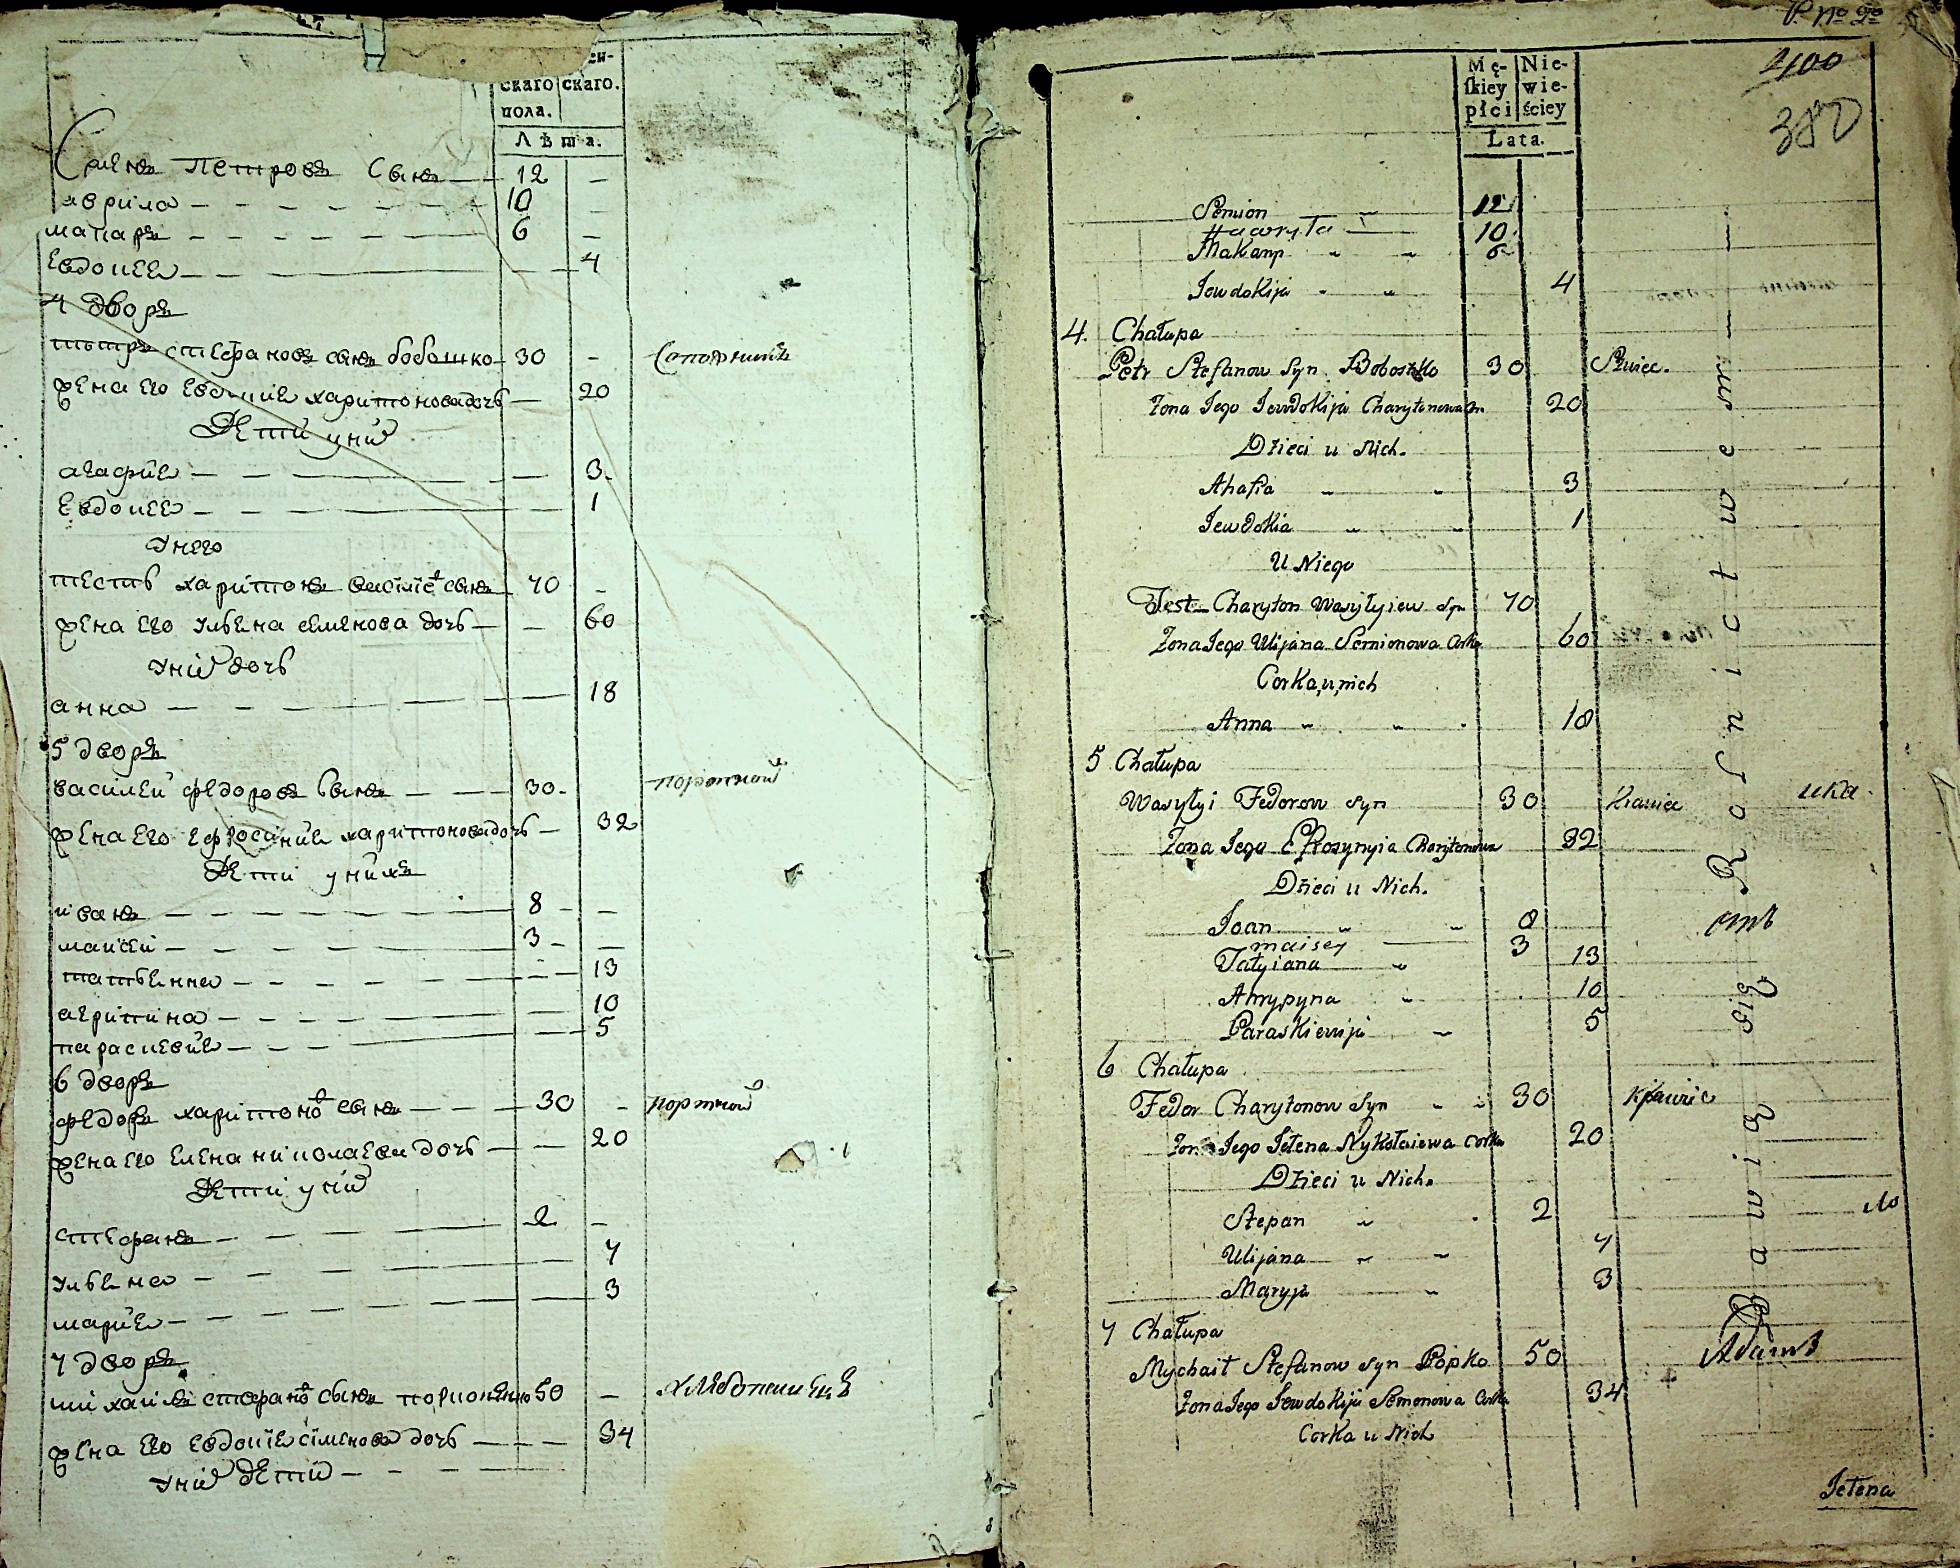 скаго скаго.
пола.
Лѣта.
Семенъ Петровъ Сынъ 12 —
10 —
макаръ 6 —
Евдокея 4
4 дворъ
Петръ стефановъ сынъ бобошко 30 — Сапожникъ
жена его Евдокия харитонова дочь — 20
Дети у них
агафия — 3
Евдокея — 1
У него
тесть харитонъ василiевъ сынъ 70 —
жена его ульяна семенова дочь — 60
У них дочь
анна — 18
5 дворъ
василей федоровъ сынъ 30 портной
жена его ефросиния харитонова дочь — 32
Дети у нихъ
иванъ 8 —
мансей 3 —
татьянна — 13
агрипина — 10
параскевия — 5
6 дворъ
федоръ харитоновъ сынъ 30 — портной
жена его елена николаева дочь — 20
Дети у них
стефанъ 2 —
ульяна 7
мария 3
7 дворъ
михайла стефановъ сынъ 50 — хлебопашецъ
жена его евдокия семенова дочь — 34
У них дети
400
380
Mę- Nie-
skiey wie-
płci ściey
Lata.
Semion „ 12
Hawryła 10
Makary „ „ 6
Jewdokija „ „ 4
4. Chałupa
Petr Stefanow Syn Boboszko 30 Szwiec.
Żona Jego Jewdokija Charytonowa 20
Dzieci u Nich.
Ahafia „ „ 3
Jewdokia „ „ 1
U Niego
Test Charyton Wasylyiew Syn 70
Żona Jego Ulijana Semionowa Corka 60
Corka u nich
Anna „ „ 18
5 Chałupa
Wasylyi Fedorow Syn 30 Krawiec
Żona Jego Efrosynyia Charytonowa 32
Dzieci u Nich.
Joan „ „ 8
maisey 3
Tatyiana „ 13
Ahrypyna „ 10
Paraskiewija „ 5
6 Chałupa
Fedor Charytonow Syn „ „ 30 Krawiec
Żona Jego Jelena Nykołaiewa Corka 20
Dzieci u Nich.
Stepan „ 2
Ulijana „ „ 7
Maryja „ 3
7 Chałupa
Mychaił Stefanow Syn Popko 50
Żona Jego Jewdokija Semonowa Corka 34
Corka u Nich
Bawią się Rolnictwem
Jelena